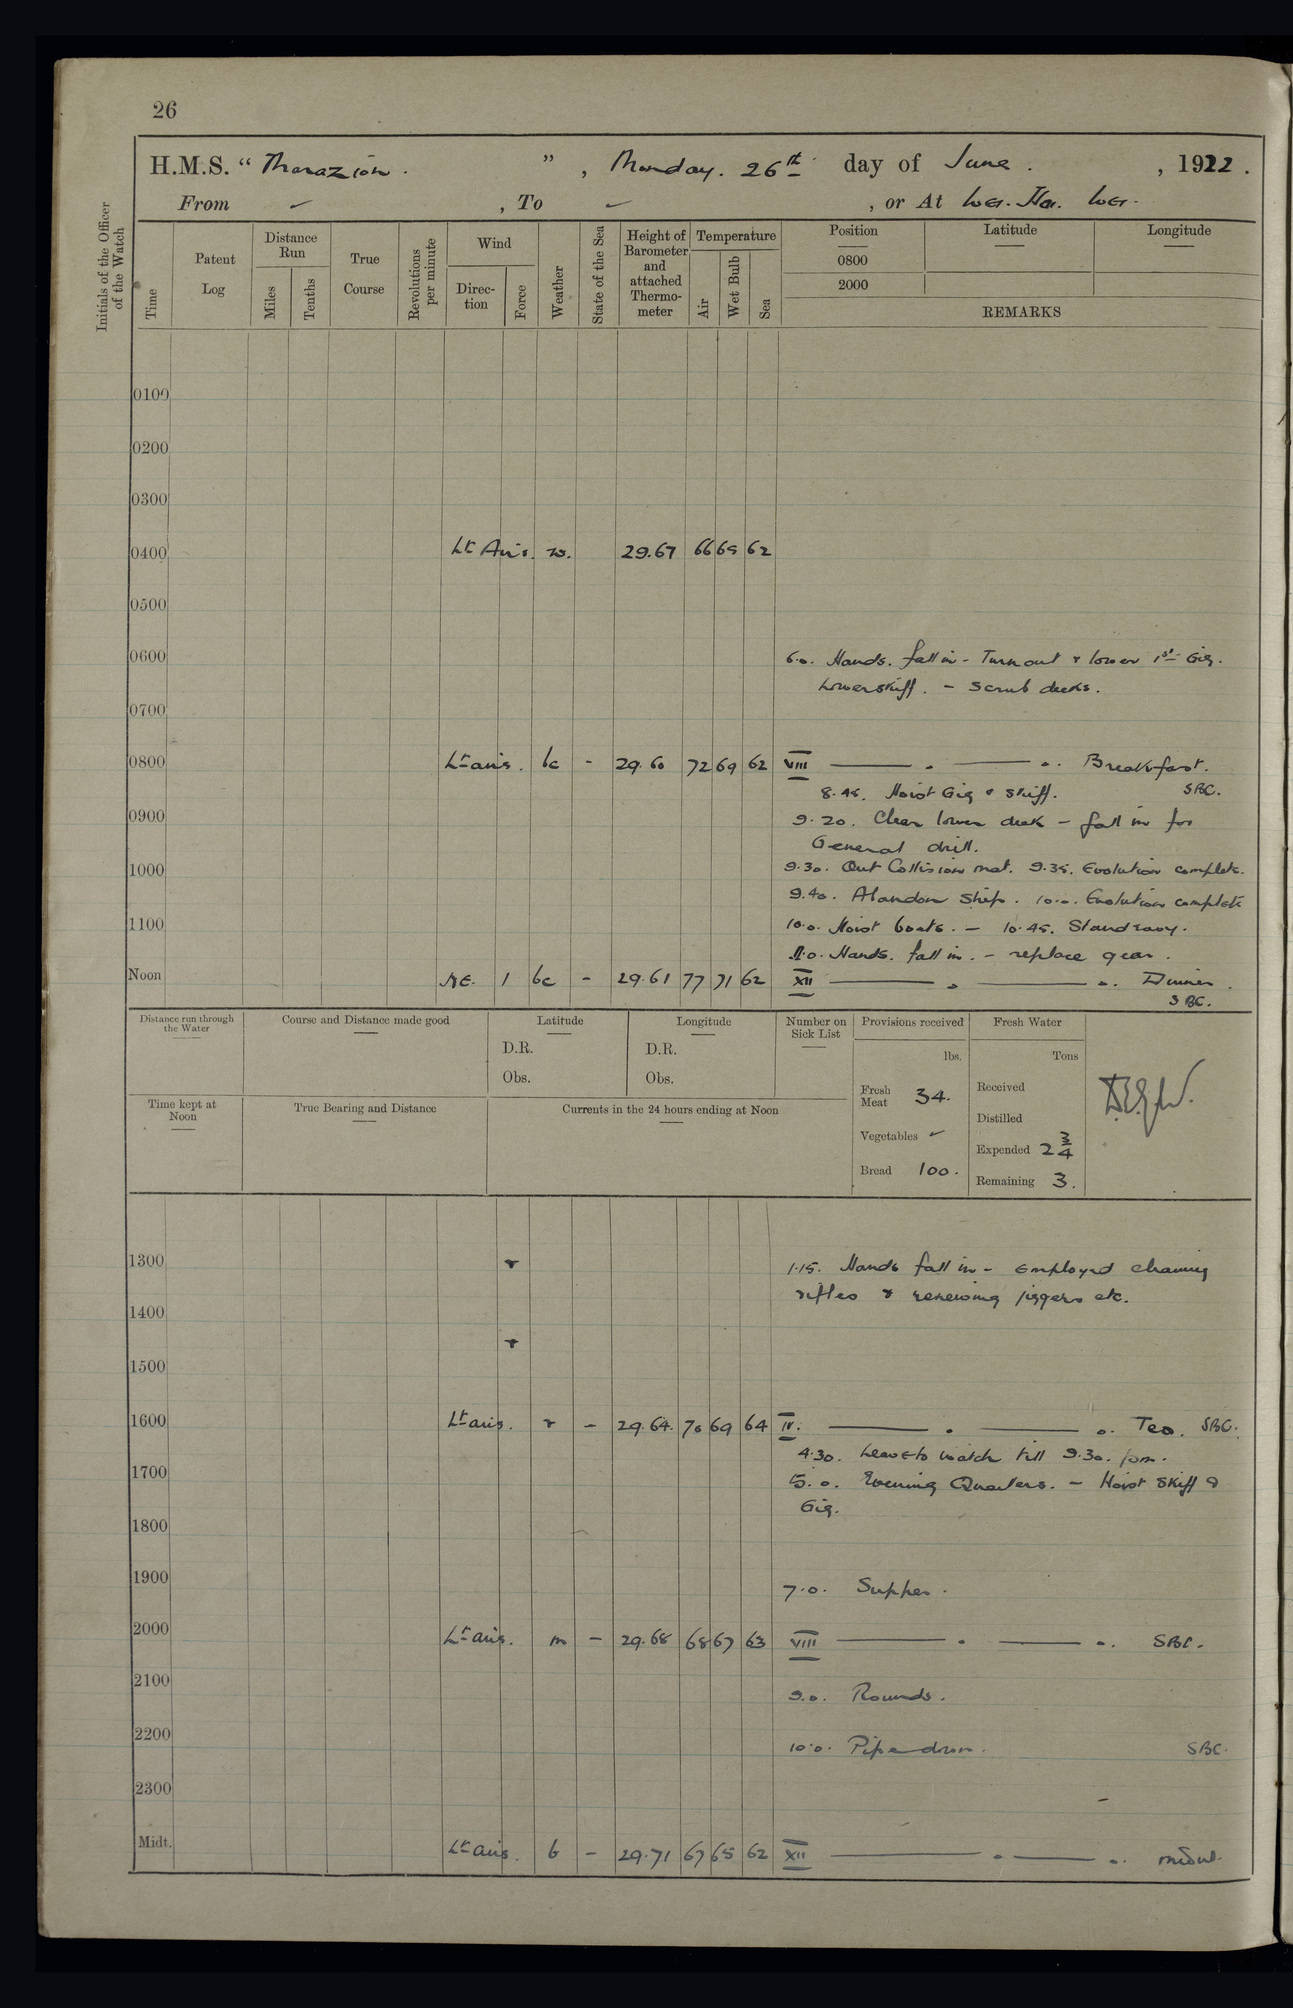 26
H.M.S. “ Marazion. ” , Monday. 26th day of June. , 1922.
From ✓ , To ✓ , or At Wei. Hai. Wei.
Initials of the Officer of the Watch
Time
Patent Log
Distance Run
Miles
Tenths
True Course
Revolutions per minute
Wind
Direction
Force
Weather
State of the Sea
Height of Barometer and attached Thermometer
Temperature
Air
Wet Bulb
Sea
Position Latitude Longitude
0800
2000
REMARKS
0100
0200
0300
0400 Lt Airs. 29.67 66 65 62
0500
0600 6.0. Hands. fall in - Turn out & lower 1st Gig.
Lower skiff. - Scrub decks.
0700
0800 Lt airs. bc - 29.60 72 69 62 VIII Breakfast.
8.45. Hoist Gig & Skiff. SBC.
0900 9.20. Clear lower deck - fall in for
General drill.
1000 9.30. Out Collision mat. 9.35. Evolution complete.
9.40. Abandon Ship. 10.0. Evolution complete
1100 10.0. Hoist boats. - 10.45. Stand easy.
11.0. Hands. fall in. - replace gear.
Noon NE. 1 bc - 29.61 77 71 62 XII Dinner.
SBC.
Distance run through the Water
Course and Distance made good
Latitude
D.R.
Obs.
Longitude
D.R.
Obs.
Number on Sick List
Provisions received
lbs.
Fresh Meat 34.
Vegetables ✓
Bread 100.
Fresh Water
Tons
Received
Distilled
Expended 2 3/4
Remaining 3.
Time kept at Noon
True Bearing and Distance
Currents in the 24 hours ending at Noon
1300 r 1.15. Hands fall in - Employed cleaning
rifles & renewing jiggers etc.
1400
r
1500
1600 Lt airs. r - 29.64. 70 69 64 IV. Tea. SBC.
4.30. Leave to watch till 9.30. pm.
1700 5.0. Evening Quarters. - Hoist Skiff &
Gig.
1800
1900 7.0. Supper.
2000 Lt airs. m - 29.68 68 67 63 VIII SBC.
2100 9.0. Rounds.
2200 10.0. Pipe down. SBC.
2300
Midt. Lt airs. b - 29.71 67 65 62 XII